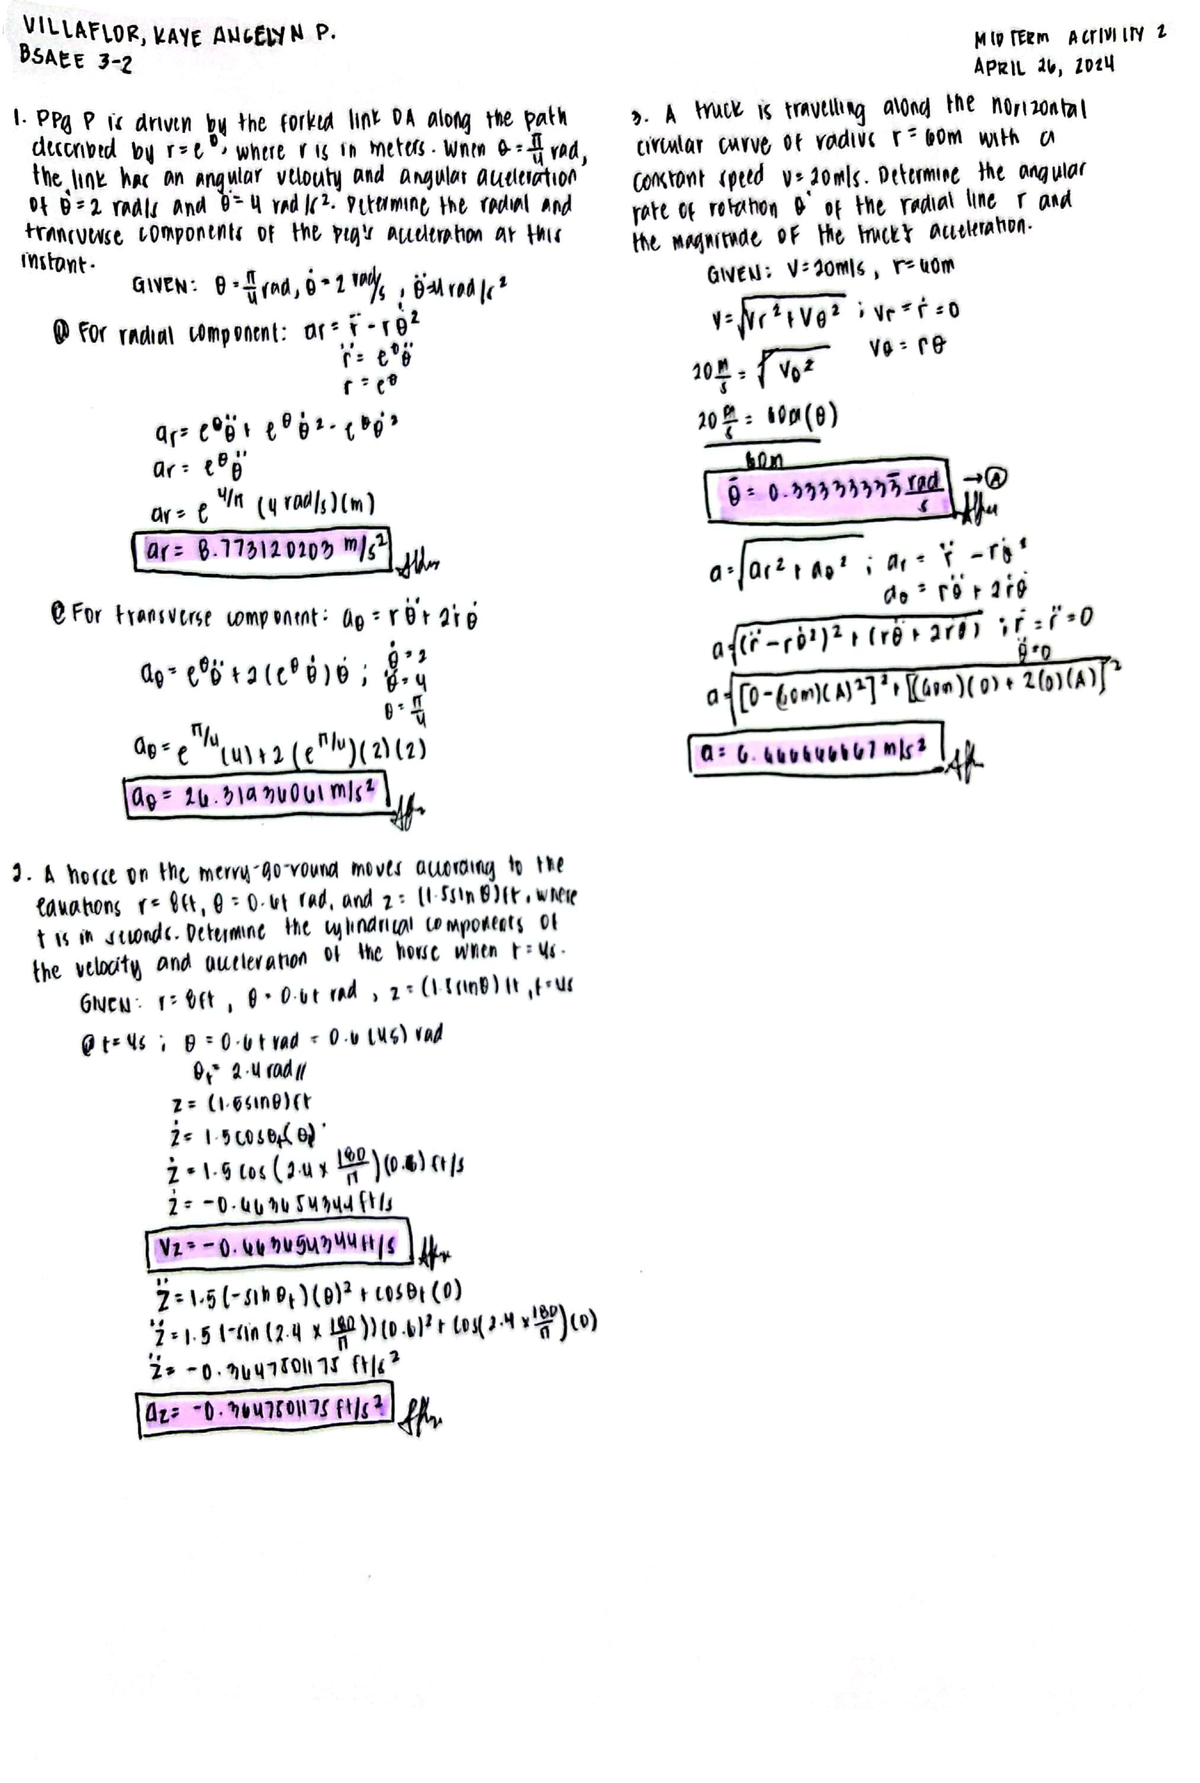 VILLAFLOR, KAYE ANGELYN P.
BSAEE 3-2
MIDTERM ACTIVITY 2
APRIL 26, 2024
1. PPg P is driven by the forked link OA along the path
described by r=e^θ, where r is in meters. When θ = π/4 rad,
the link has an angular velocity and angular acceleration
of θ̇ = 2 rad/s and θ̈ = 4 rad/s². Determine the radial and
transverse components of the peg's acceleration at this
instant.
GIVEN: θ = π/4 rad, θ̇ = 2 rad/s, θ̈=4 rad/s²
@ For radial component: ar = r̈ - rθ̇²
r̈ = e^θ θ̈
r = e^θ
ar = e^θ θ̈ + e^θ θ̇² - e^θ θ̇²
ar = e^θ θ̈
ar = e^4/π (4 rad/s)(m)
ar = 8.773120203 m/s²
@ For transverse component: aθ = rθ̈ + 2ṙθ̇
aθ = e^θ θ̈ + 2(e^θ θ̇)θ̇ ; θ̇ = 2
θ̈ = 4
θ = π/4
aθ = e^π/4 (4) + 2(e^π/4)(2)(2)
aθ = 26.31936061 m/s²
2. A horse on the merry-go-round moves according to the
equations r = 8ft, θ = 0.6t rad, and z = (1.5sin θ)ft, where
t is in seconds. Determine the cylindrical components of
the velocity and acceleration of the horse when t = 4s.
GIVEN: r = 8ft, θ = 0.6t rad, z = (1.5sinθ)ft, t=4s
@ t= 4s ; θ = 0.6t rad = 0.6(4s) rad
θt = 2.4 rad//
z = (1.5sinθ)ft
ż = 1.5cosθt(θ)
ż = 1.5 cos (2.4 x 180/π)(0.6) ft/s
ż = -0.663654344 ft/s
Vz = -0.663654344 ft/s
z̈ = 1.5(-sin θt)(θ)² + cosθt(0)
z̈ = 1.5(-sin(2.4 x 180/π))(0.6)² + cos(2.4 x 180/π)(0)
z̈ = -0.3647501175 ft/s²
az = -0.3647501175 ft/s²
3. A truck is travelling along the horizontal
circular curve of radius r = 60m with a
constant speed v = 20m/s. Determine the angular
rate of rotation θ̇ of the radial line r and
the magnitude OF the truck's acceleration.
GIVEN: V = 20m/s, r = 60m
V = √Vr² + Vθ² ; Vr = ṙ = 0
Vθ = rθ
20 m/s = √Vθ²
20 m/s = 60m(θ)
60m
θ̇ = 0.333333333 rad/s → Ⓐ
a = √ar² + aθ² ; ar = r̈ - rθ̇²
aθ = rθ̈ + 2ṙθ̇
a = √(r̈ - rθ̇²)² + (rθ̈ + 2ṙθ̇) ; ṙ = r̈ = 0
θ̈ = 0
a = √[0 - (60m)(A)²]² + [(60m)(0) + 2(0)(A)]²
a = 6.666666667 m/s²